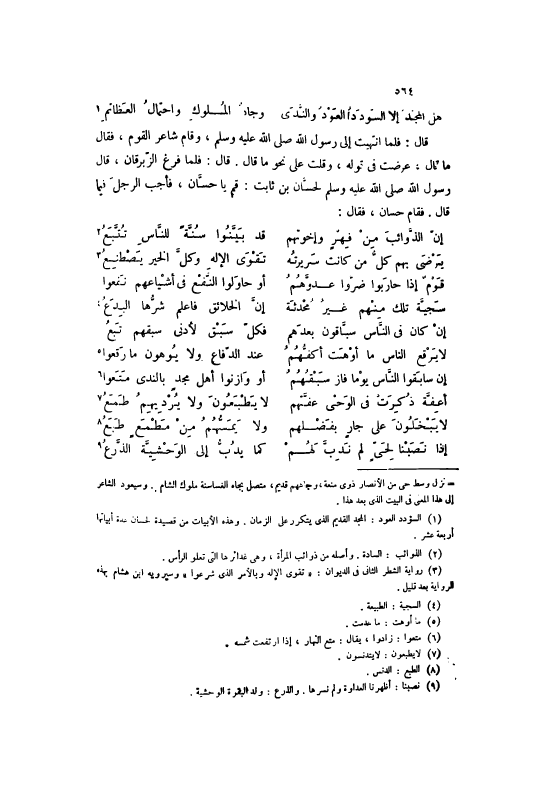 ٥٦٤
هل المجد إلا السودد العود والندى وجاه الملوك واحتمال العظائم ١
قال : فلما انتهيت إلى رسول الله صلى الله عليه وسلم ، وقام شاعر القوم ، فقال
ما قال ، عرضت فى قوله ، وقلت على نحو ما قال . قال : فلما فرغ الزبرقان ، قال
رسول الله صلى الله عليه وسلم لحسان بن ثابت : قم يا حسان ، فأجب الرجل فيما
قال . فقام حسان ، فقال :
إنّ الذّوائب مِنْ فِهْرٍ وإخوتهم قد بَيَّنُوا سُنَّةً للنَّاسِ تُتَّبَعُ٢
يَرْضَى بهم كلُّ من كانت سَرِيرتُه تقوَى الإله وكلَّ الخير يَصْطنِعُ٣
قَوْمٌ إذا حاربوا ضروا عدوَّهُمُ أو حاولوا النَّفْعَ فى أشياعهم نفَعوا
سجيَّة تلك مِنْهم غيرُ مُحْدثة إنَّ الخلائق فاعلم شرُّها البِدَعُ٤
إنْ كان فى النَّاس سبَّاقون بعدهم فكلّ سَبْق لأدنى سبقهم تَبَعُ
لايَرْقع الناس ما أوْهَت أكفُّهُمُ عند الدّفاع ولا يُوهون ما رقَعوا٥
إن سابقوا النَّاس يوْما فاز سَبْقُهُمُ أو وازنوا أهل مجد بالندى متَعوا٦
أعِفَّة ذُكِرَتْ فى الوَحْى عفَّتهم لا يَطْبَعُون ولا يُرْديهمُ طمَعُ٧
لايَبْخَلُون على جارٍ بفَضْلهم ولا يَمَسُّهُمُ مِنْ مَطْمَعٍ طبَعُ٨
إذا نَصَبْنا لحىّ لم نَدِبَّ لهُمْ كما يدُبُّ إلى الوَحْشيَّة الذَّرعُ٩
= نزل وسط حى من الأنصار ذوى منعة ، وجاههم قديم ، متصل بجاه الغساسنة ملوك الشام . وسيعود الشاعر
إلى هذا المعنى فى البيت الذى بعد هذا .
(١) السودد العود : المجد القديم الذى يتكرر على الزمان . وهذه الأبيات من قصيدة لحسان عدة أبياتها
أربعة عشر .
(٢) الذوائب : السادة . وأصله من ذوائب المرأة ، وهى غدائرها التى تعلو الرأس .
(٣) رواية الشطر الثانى فى الديوان : « تقوى الإله وبالأمر الذى شرعوا » وسيرويه ابن هشام بهذه
الرواية بعد قليل .
(٤) السجية : الطبيعة .
(٥) ما أوهت : ما هدمت .
(٦) متعوا : زادوا ، يقال : متع النهار ، إذا ارتفعت شمسه .
(٧) لايطبعون : لايتدنسون .
(٨) الطبع : الدنس .
(٩) نصبنا : أظهرنا العداوة ولم نسرها . والذرع : ولد البقرة الوحشية .